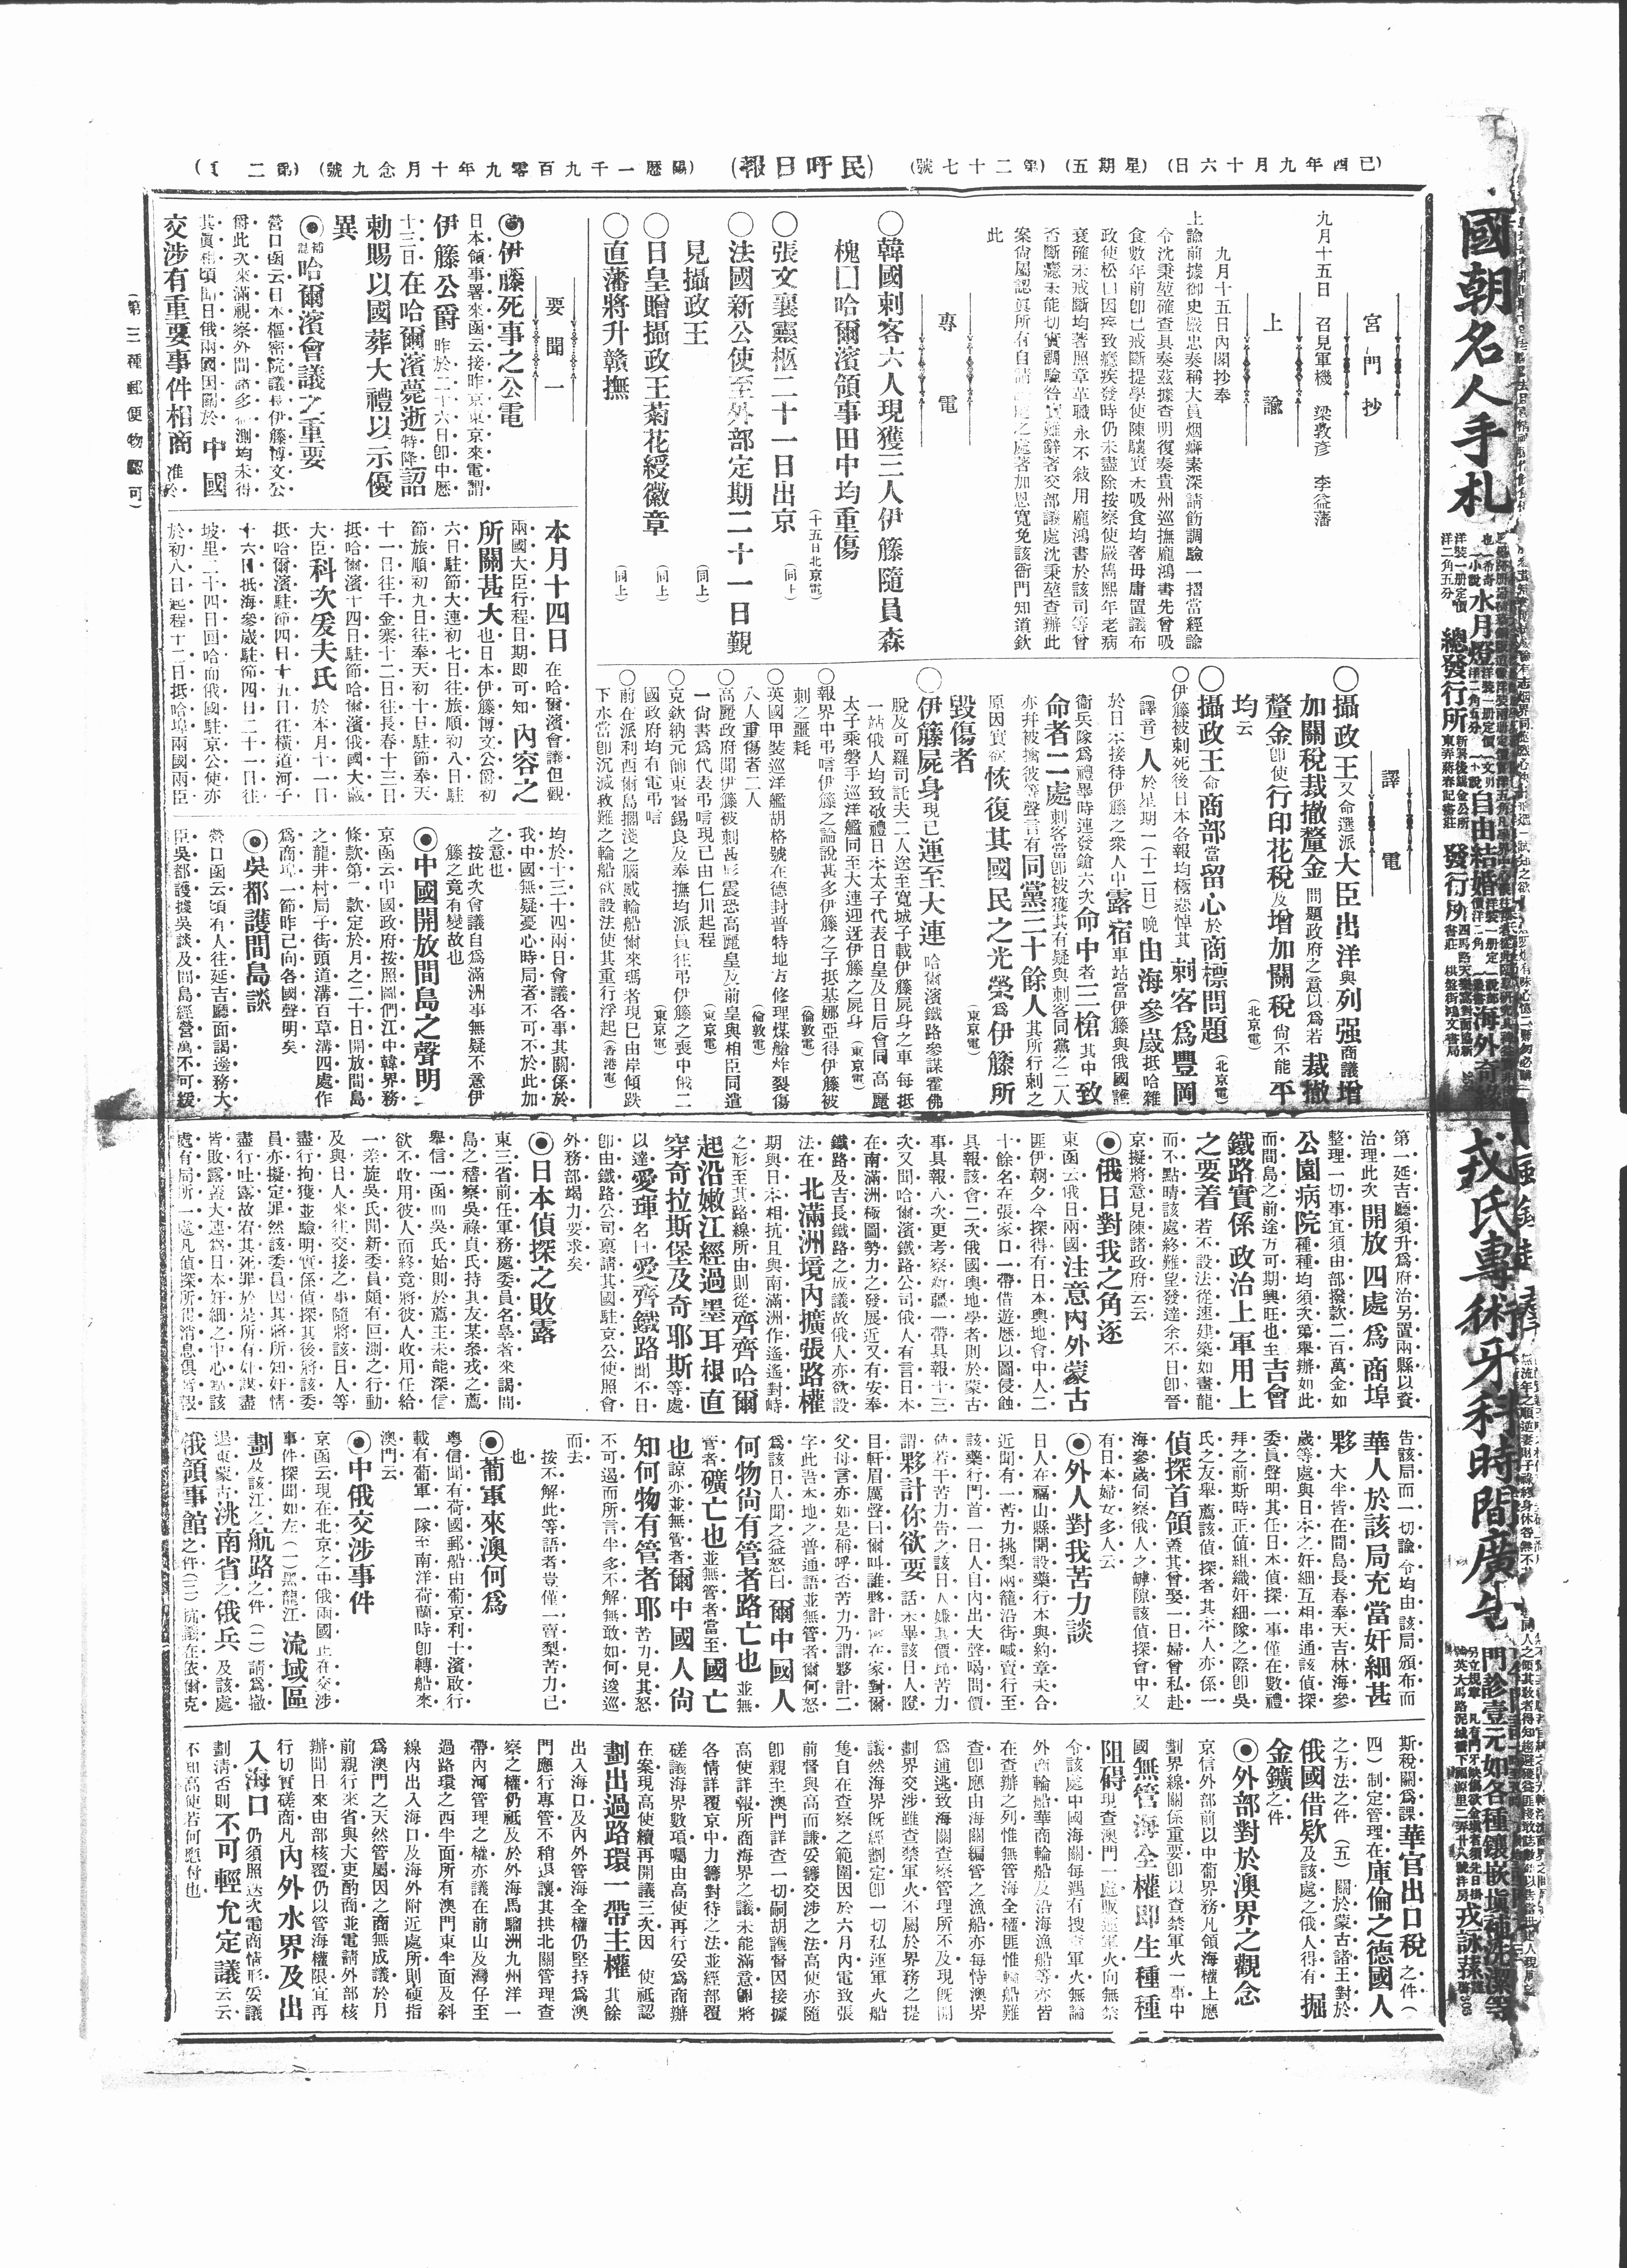 己酉年九月十六日（星期五）（第二十七號）（民吁日報）（陽曆一千九百零九年十月念九號）（第二頁）
國朝名人手札
總發行所
水月燈
自由結婚
海外奇
戎氏專術牙科時間廣告
門診壹元如各種鑲嵌塡補洗潔等
宮門抄
九月十五日　召見軍機　梁敦彥　李益藩
上諭
九月十五日內閣抄奉
上諭前據御史嚴忠奏稱大員烟癖素深請飭調驗一摺當經諭
令沈秉堃確查具奏茲據查明復奏貴州巡撫龐鴻書先曾吸
食數年前卽已戒斷提學使陳驤實未吸食均著毋庸置議布
政使松　因疾致癮疾發時仍未盡除按察使嚴雋熙年老病
衰確未戒斷均著照章革職永不敘用龐鴻書於該司等曾
否斷癮未能切實調驗咎實難辭著交部議處沈秉堃查辦此
案尙屬認眞所有自請議處之處著加恩寬免該衙門知道欽
此
專電
○韓國刺客六人現獲三人伊籐隨員森
槐口哈爾濱領事田中均重傷
（十五日北京電）
○張文襄靈柩二十一日出京（同上）
○法國新公使至外部定期二十一日覲
見攝政王（同上）
○日皇贈攝政王菊花綬徽章（同上）
○直藩將升贛撫（同上）
譯電
○攝政王又命選派大臣出洋與列强商議增
加關稅裁撤釐金問題政府之意以爲若裁撤
釐金卽使行印花稅及增加關稅尙不能平
均云（北京電）
○攝政王命商部當留心於商標問題（北京電）
○伊籐被刺死後日本各報均極悲悼其刺客爲豐岡
（譯音）人於星期一（十二日）晚由海參崴抵哈雜
於日本接待伊籐之衆人中露宿車站當伊籐與俄國護
衞兵隊爲禮舉時連發鎗六次命中者三槍其中致
命者二處刺客當卽被獲其有疑與刺客同黨之二人
亦幷被擒彼等聲言有同黨三十餘人其所行刺之
原因實欲恢復其國民之光榮爲伊籐所
毀傷者（東京電）
○伊籐屍身現已運至大連哈爾濱鐵路參謀霍佛
脫及可羅司託夫二人送至寬城子載伊籐屍身之車每抵
一站俄人均致敬禮日本太子代表日皇及日后會同高麗
太子乘磐手巡洋艦同至大連迎迓伊籐之屍身（東京電）
○報界中弔唁伊籐之論說甚多伊籐之子抵基娜亞得伊籐被
刺之噩耗（倫敦電）
○英國甲裝巡洋艦胡格號在德封普特地方修理煤艙炸裂傷
八人重傷者二人（倫敦電）
○高麗政府聞伊籐被刺甚形震恐高麗皇及前皇與相臣同遣
一尙書爲代表弔唁現已由仁川起程（東京電）
○克欽納元帥東督錫良及奉撫均派員往弔伊籐之喪中俄二
國政府均有電弔唁（東京電）
○前在派利西爾島擱淺之腦威輪船爾來瑪者現已由岸傾跌
下水當卽沉滅救難之輪船欲設法使其重行浮起（香港電）
要聞一
◉伊藤死事之公電
日本領事署來函云接昨京東京來電謂
伊籐公爵昨於二十六日卽中曆
十三日在哈爾濱薨逝特降詔
勅賜以國葬大禮以示優
異
◉補誌哈爾濱會議之重要
營口函云日本樞密院議長伊籐博文公
爵此次來滿視察外間諸多　測均未得
其眞相頃聞日俄兩國因關於中國
交涉有重要事件相商准於
本月十四日在哈爾濱會議但觀
兩國大臣行程日期卽可知內容之
所關甚大也日本伊籐博文公爵初
六日駐節大連初七日往旅順初八日駐
節旅順初九日往奉天初十日駐節奉天
十一日往千金寨十二日往長春十三日
抵哈爾濱十四日駐節哈爾濱俄國大藏
大臣科次爰夫氏於本月十一日
抵哈爾濱駐節四日十五日往橫道河子
十六日抵海參崴駐節四日二十一日往
坡里二十四日回哈而俄國駐京公使亦
於初八日起程十二日抵哈埠兩國兩臣
均於十三十四兩日會議各事其關係於
我中國無疑憂心時局者不可不於此加
之意也
按此次會議自爲滿洲事無疑不意伊
籐之竟有變故也
◉中國開放間島之聲明
京函云中國政府按照圖們江中韓界務
條款第二款定於月之二十日開放間島
之龍井村局子街頭道溝百草溝四處作
爲商埠一節昨已向各國聲明矣
◉吳都護間島談
營口函云頃有人往延吉廳面謁邊務大
臣吳都護據吳談及間島經營萬不可緩
第一延吉廳須升爲府治另置兩縣以資
治理此次開放四處爲商埠
整理一切事宜須由部撥款二百萬金如
公園病院種種均須次第舉辦如此
而間島之前途方可期興旺也至吉會
鐵路實係政治上軍用上
之要着若不設法從速建築如畫龍
而不點睛該處終難望發達余不日卽晉
京擬將意見陳諸政府云云
◉俄日對我之角逐
東函云俄日兩國注意內外蒙古
匪伊朝夕今探得有日本輿地會中人二
十餘名在張家口一帶借遊歷以圖侵蝕
具報該會二次俄國輿地學者則於蒙古
事具報八次更考察新疆一帶具報十三
次又聞哈爾濱鐵路公司俄人有言日本
在南滿洲極圖勢力之發展近又有安奉
鐵路及吉長鐵路之成議故俄人亦欲設
法在北滿洲境內擴張路權
期與日本相抗且與南滿洲作遙遙對峙
之形至其路線所由則從齊齊哈爾
起沿嫩江經過墨耳根直
穿奇拉斯堡及奇耶斯等處
以達愛琿名曰愛齊鐵路聞不日
卽由鐵路公司禀請其國駐京公使照會
外務部竭力要求矣
◉日本偵探之敗露
東三省前任軍務處委員名辜者來謁間
島之稽察吳祿貞氏持其友某叅戎之薦
舉信一函而吳氏始則於薦主未能深信
欲不收用彼人而終竟將彼人收用任給
一差旋吳氏聞新委員頗有叵測之行動
及與日人來往交接之事隨將該日人等
盡行拘獲並驗明實係偵探其後將該委
員亦擬定罪然該委員因其將所知奸情
盡行吐露故宥其死罪於是所有奸謀盡
皆敗露蓋大連爲日本奸細之中心點該
處有局所一處凡偵探所得消息俱皆報
告該局而一切諭令均由該局頒布而
華人於該局充當奸細甚
夥大半皆在間島長春奉天吉林海參
崴等處與日本之奸細互相串通該偵探
委員聲明其任日本偵探一事僅在數禮
拜之前斯時正值組織奸細隊之際卽吳
氏之友舉薦該偵探者其本人亦係一
偵探首領蓋其曾娶一日婦曾私赴
海參崴伺察俄人之罅隙該偵探會中又
有日本婦女多人云
◉外人對我苦力談
日人在福山縣開設藥行本與約章未合
近聞有一苦力挑梨兩籠沿街喊賣行至
該藥行門首一日人自內出大聲喝問價
值若干苦力告之該日人嫌其價昂苦力
謂夥計你欲要話未畢該日人瞪
目軒眉厲聲曰爾叫誰夥計　在家對爾
父母言亦如是稱呼否苦力乃謂夥計二
字此吾本地之普通語並無管者爾何怒
爲該日人聞之益怒曰爾中國人
何物尙有管者路亡也並無
管者礦亡也並無管者當至國亡
也諒亦並無管者爾中國人尙
知何物有管者耶苦力見其怒
不可遏而所言半多不解無敢如何逡巡
而去
按不解此等語者豈僅一賣梨苦力已
也
◉葡軍來澳何爲
粤信聞有荷國郵船由葡京利士濱啟行
載有葡軍一隊至南洋荷蘭時卽轉船來
澳門云
◉中俄交涉事件
京函云現在北京之中俄兩國正在交涉
事件探聞如左（一）黑龍江流域區
劃及該江之航路之件（二）請爲撤
退東蒙古洮南省之俄兵及該處
俄領事館之件（三）抗議在依爾克
斯稅關爲課華官出口稅之件（
四）制定管理在庫倫之德國人
之方法之件（五）關於蒙古諸王對於
俄國借欵及該處之俄人得有掘
金鑛之件
◉外部對於澳界之觀念
京信外部前以中葡界務凡領海權上應
劃界線關係重要卽以查禁軍火一事中
國無管海全權即生種種
阻碍現查澳門一處販運軍火向無禁
令該處中國海關每遇有搜查軍火無論
外商輪船華商輪船及沿海漁船等亦皆
在查辦之列惟無管海全權匪惟輪船難
查卽應由海關編管之漁船亦每恃澳界
爲逋逃致海關查察管理所不及現旣開
劃界交涉雖查禁軍火不屬於界務之提
議然海界旣經劃定卽一切私運軍火船
隻自在查察之範圍因於六月內電致張
前督與高而謙妥籌交涉之法高使亦隨
卽親至澳門詳查一切嗣胡護督因接據
高使詳報所商海界之議未能滿意卽將
各情詳覆京中力籌對待之法並經部覆
磋議海界數項囑由高使再行妥爲商辦
在案現高使續再開議三次因　使祗認
劃出過路環一帶主權其餘
出入海口及內外管海全權仍堅持爲澳
門應行專管不稍退讓其拱北關管理查
察之權仍祗及於外海馬騮洲九州洋一
帶內河管理之權亦議在前山及灣仔至
過路環之西半面所有澳門東半面及斜
線內出入海口及海外附近處所則硬指
爲澳門之天然管屬因之商無成議於月
前親行來省與大吏酌商並電請外部核
辦聞日來由部核覆仍以管海權限宜再
行切實磋商凡內外水界及出
入海口仍須照迭次電商情形妥議
劃淸否則不可輕允定議云云
不知高使若何應付也
（第三種郵便物認可）